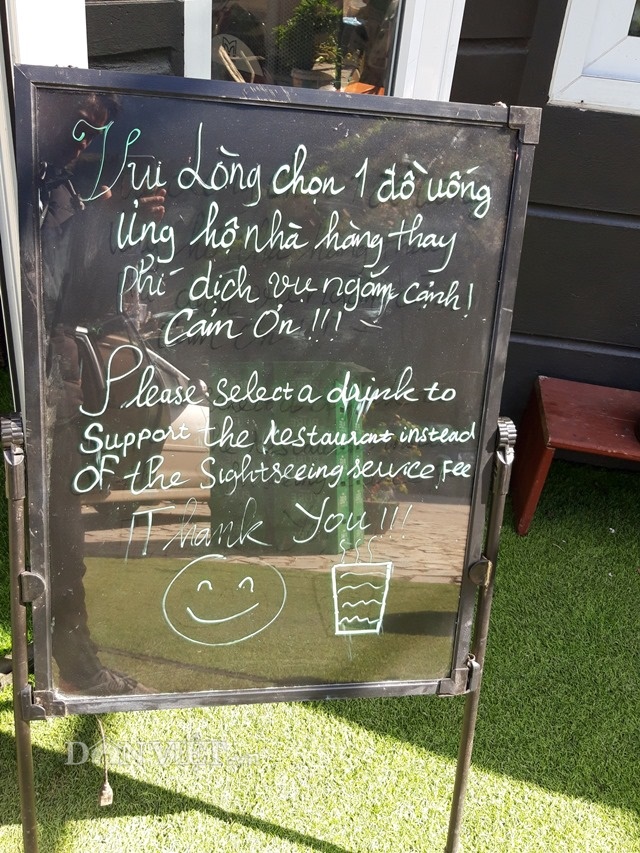 Vui Lòng chọn 1 đồ uống
Ủng hộ nhà hàng thay
phí dịch vụ ngắm cảnh!
Cám Ơn !!!
Please select a drink to
Support the Restaurant instead
OF the Sightseeing service Fee
Thank You!!!
DÂN VIỆT